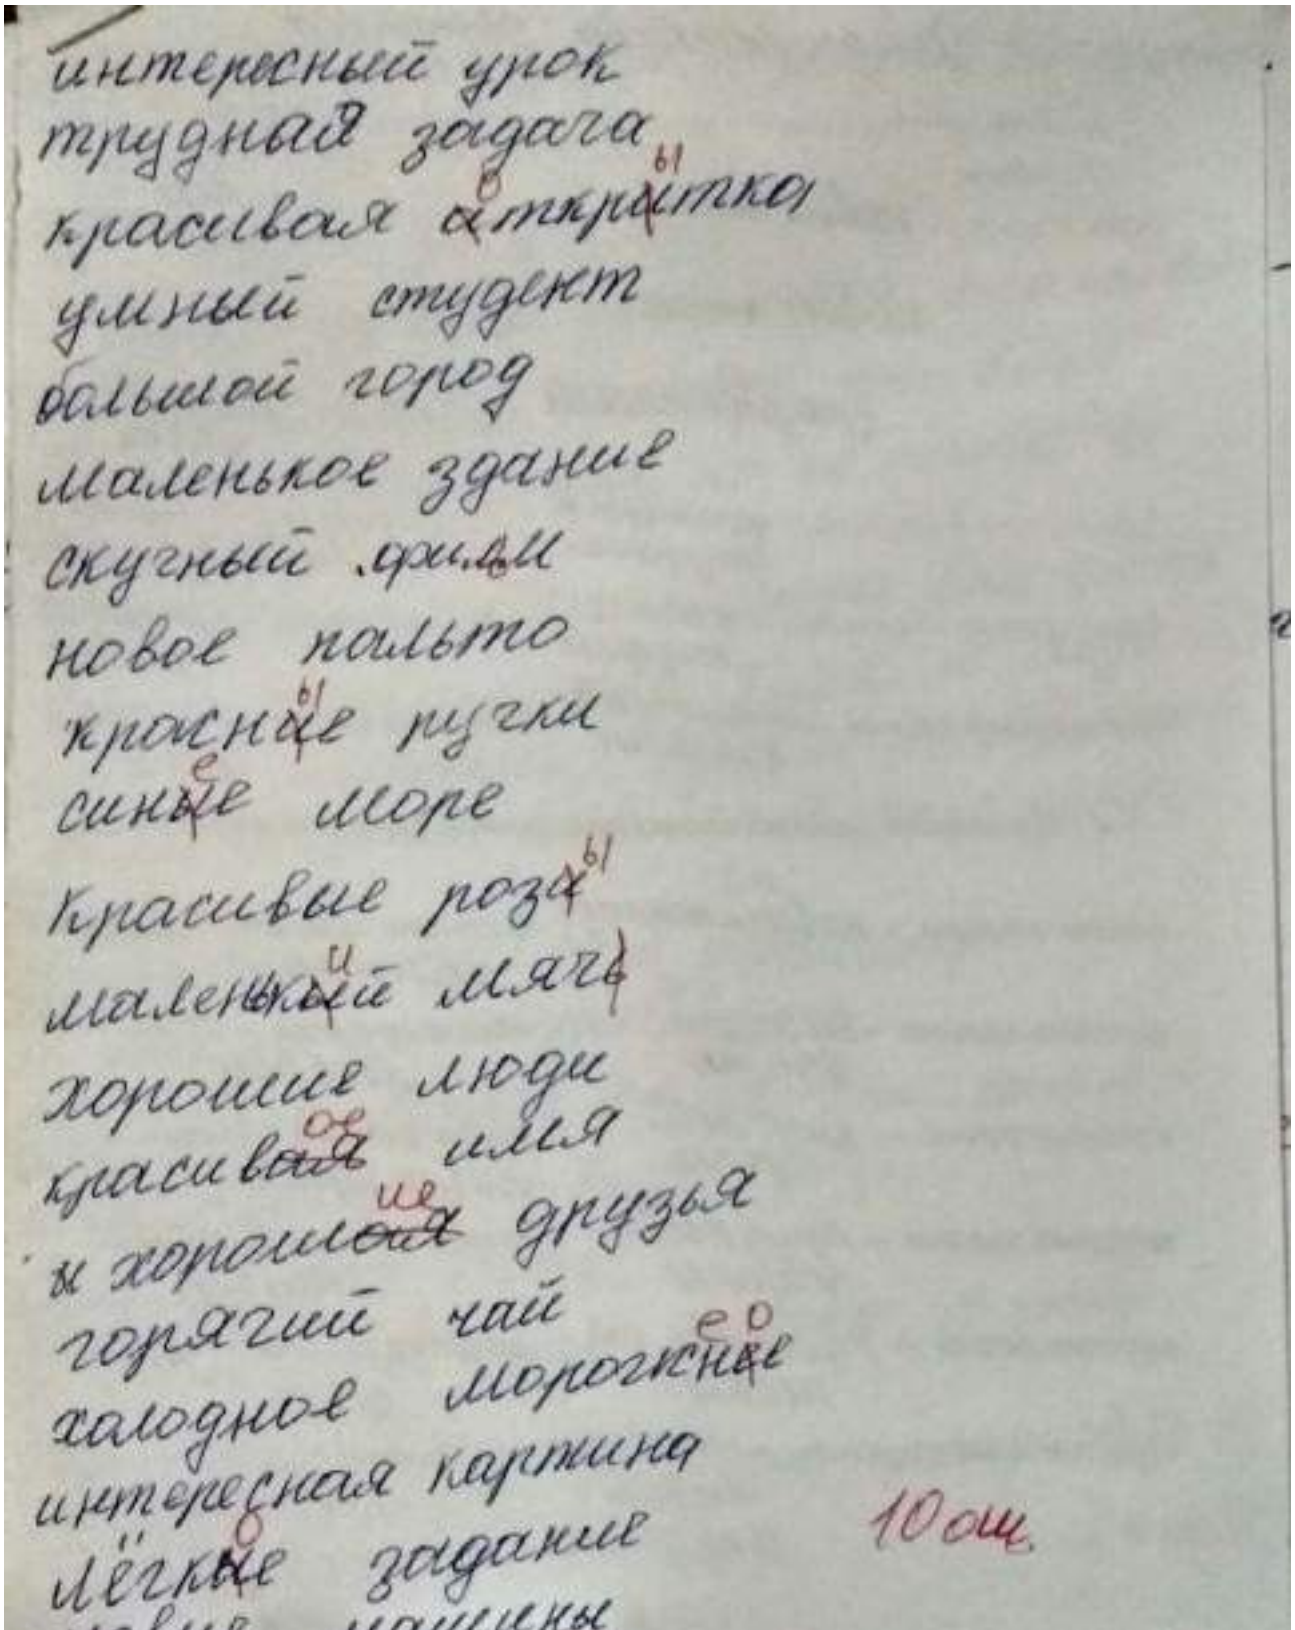 интересный урок
трудная задача
о ы
красивая аткратка
умный студент
большой город
маленькое здание
скучный фильм
новое пальто
ы
краснае ручки
е
синые море
ы
Красивые роза
и
маленькый мячь
хорошие люди
ое
красивая имя
ие
и хорошая друзья
горячий чай
е о
холодное морожнае
интересная картина
о
лёгкые задание
10 ош.
машины